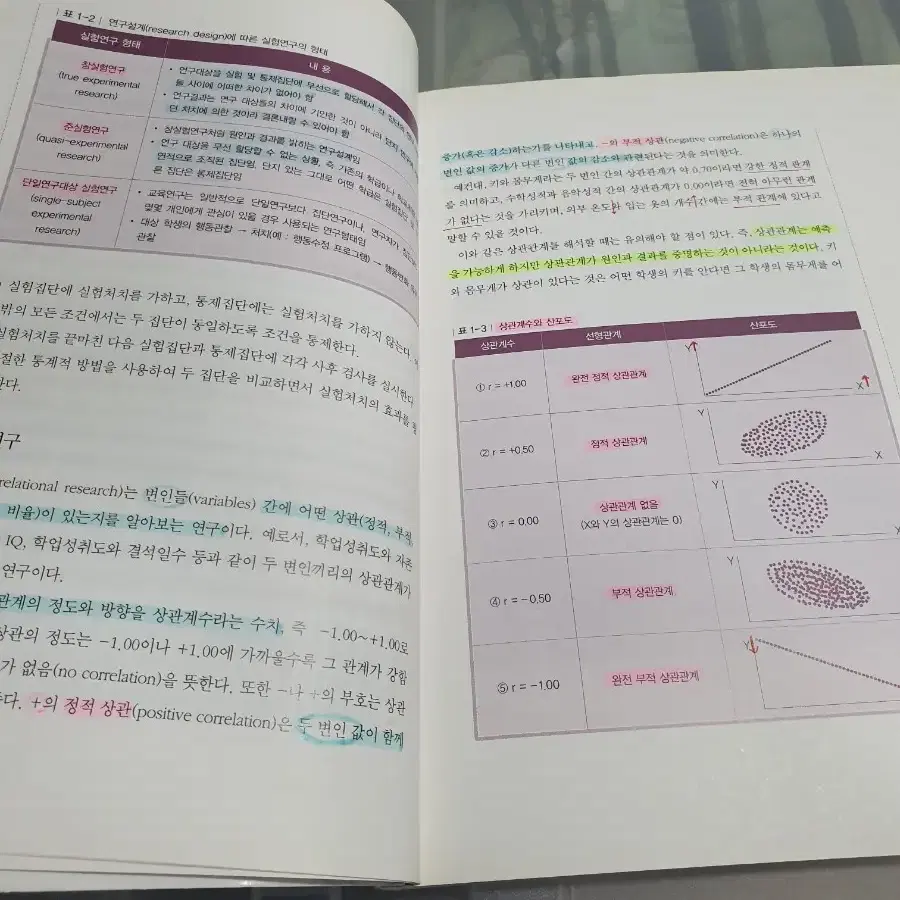 표 1-2 | 연구설계(research design)에 따른 실험연구의 형태
실험연구 형태
내 용
참실험연구
(true experimental
research)
• 연구대상을 실험 및 통제집단에 무선으로 할당해서 각 집단의
들 사이에 어떠한 차이가 없어야 함
• 연구결과는 연구 대상들의 차이에 기인한 것이 아니라
던 처치에 의한 것이라 결론내릴 수 있어야 함
준실험연구
(quasi-experimental
research)
• 참실험연구처럼 원인과 결과를 밝히는 연구설계임
• 연구 대상을 무선 할당할 수 없는 상황, 즉 기존의 학급이나
연적으로 조직된 집단임. 단지 있는 그대로 어떤 학급은 실험집단
른 집단은 통제집단임
단일연구대상 실험연구
(single-subject
experimental
research)
• 교육연구는 일반적으로 단일연구보다 집단연구이나, 연구자가
몇몇 개인에게 관심이 있을 경우 사용되는 연구형태임
• 대상 학생의 행동관찰 → 처치(예 : 행동수정 프로그램) → 행동변화
관찰
실험집단에 실험처치를 가하고, 통제집단에는 실험처치를 가하지 않는다.
밖의 모든 조건에서는 두 집단이 동일하도록 조건을 통제한다.
실험처치를 끝마친 다음 실험집단과 통제집단에 각각 사후 검사를 실시한다
절한 통계적 방법을 사용하여 두 집단을 비교하면서 실험처치의 효과를
한다.
연구
relational research)는 변인들(variables) 간에 어떤 상관(정적, 부적,
비율)이 있는지를 알아보는 연구이다. 예로서, 학업성취도와 자존
IQ, 학업성취도와 결석일수 등과 같이 두 변인끼리의 상관관계가
연구이다.
관계의 정도와 방향을 상관계수라는 수치, 즉 -1.00~+1.00로
상관의 정도는 -1.00이나 +1.00에 가까울수록 그 관계가 강함
가 없음(no correlation)을 뜻한다. 또한 -나 +의 부호는 상관
다. +의 정적 상관(positive correlation)은 두 변인 값이 함께
증가(혹은 감소)하는가를 나타내고, -의 부적 상관(negative correlation)은 하나의
변인 값의 증가가 다른 변인 값의 감소와 관련된다는 것을 의미한다.
예컨대, 키와 몸무게라는 두 변인 간의 상관관계가 약 0.70이라면 강한 정적 관계
를 의미하고, 수학성적과 음악성적 간의 상관관계가 0.00이라면 전혀 아무런 관계
가 없다는 것을 가리키며, 외부 온도와 입는 옷의 개수 간에는 부적 관계에 있다고
말할 수 있을 것이다.
이와 같은 상관관계를 해석할 때는 유의해야 할 점이 있다. 즉, 상관관계는 예측
을 가능하게 하지만 상관관계가 원인과 결과를 증명하는 것이 아니라는 것이다. 키
와 몸무게가 상관이 있다는 것은 어떤 학생의 키를 안다면 그 학생의 몸무게를 어
표 1-3 | 상관계수와 산포도
상관계수
선형관계
산포도
① r = +1.00
완전 정적 상관관계
Y
X
② r = +0.50
정적 상관관계
Y
X
③ r = 0.00
상관관계 없음
(X와 Y의 상관관계는 0)
Y
④ r = -0.50
부적 상관관계
Y
⑤ r = -1.00
완전 부적 상관관계
Y